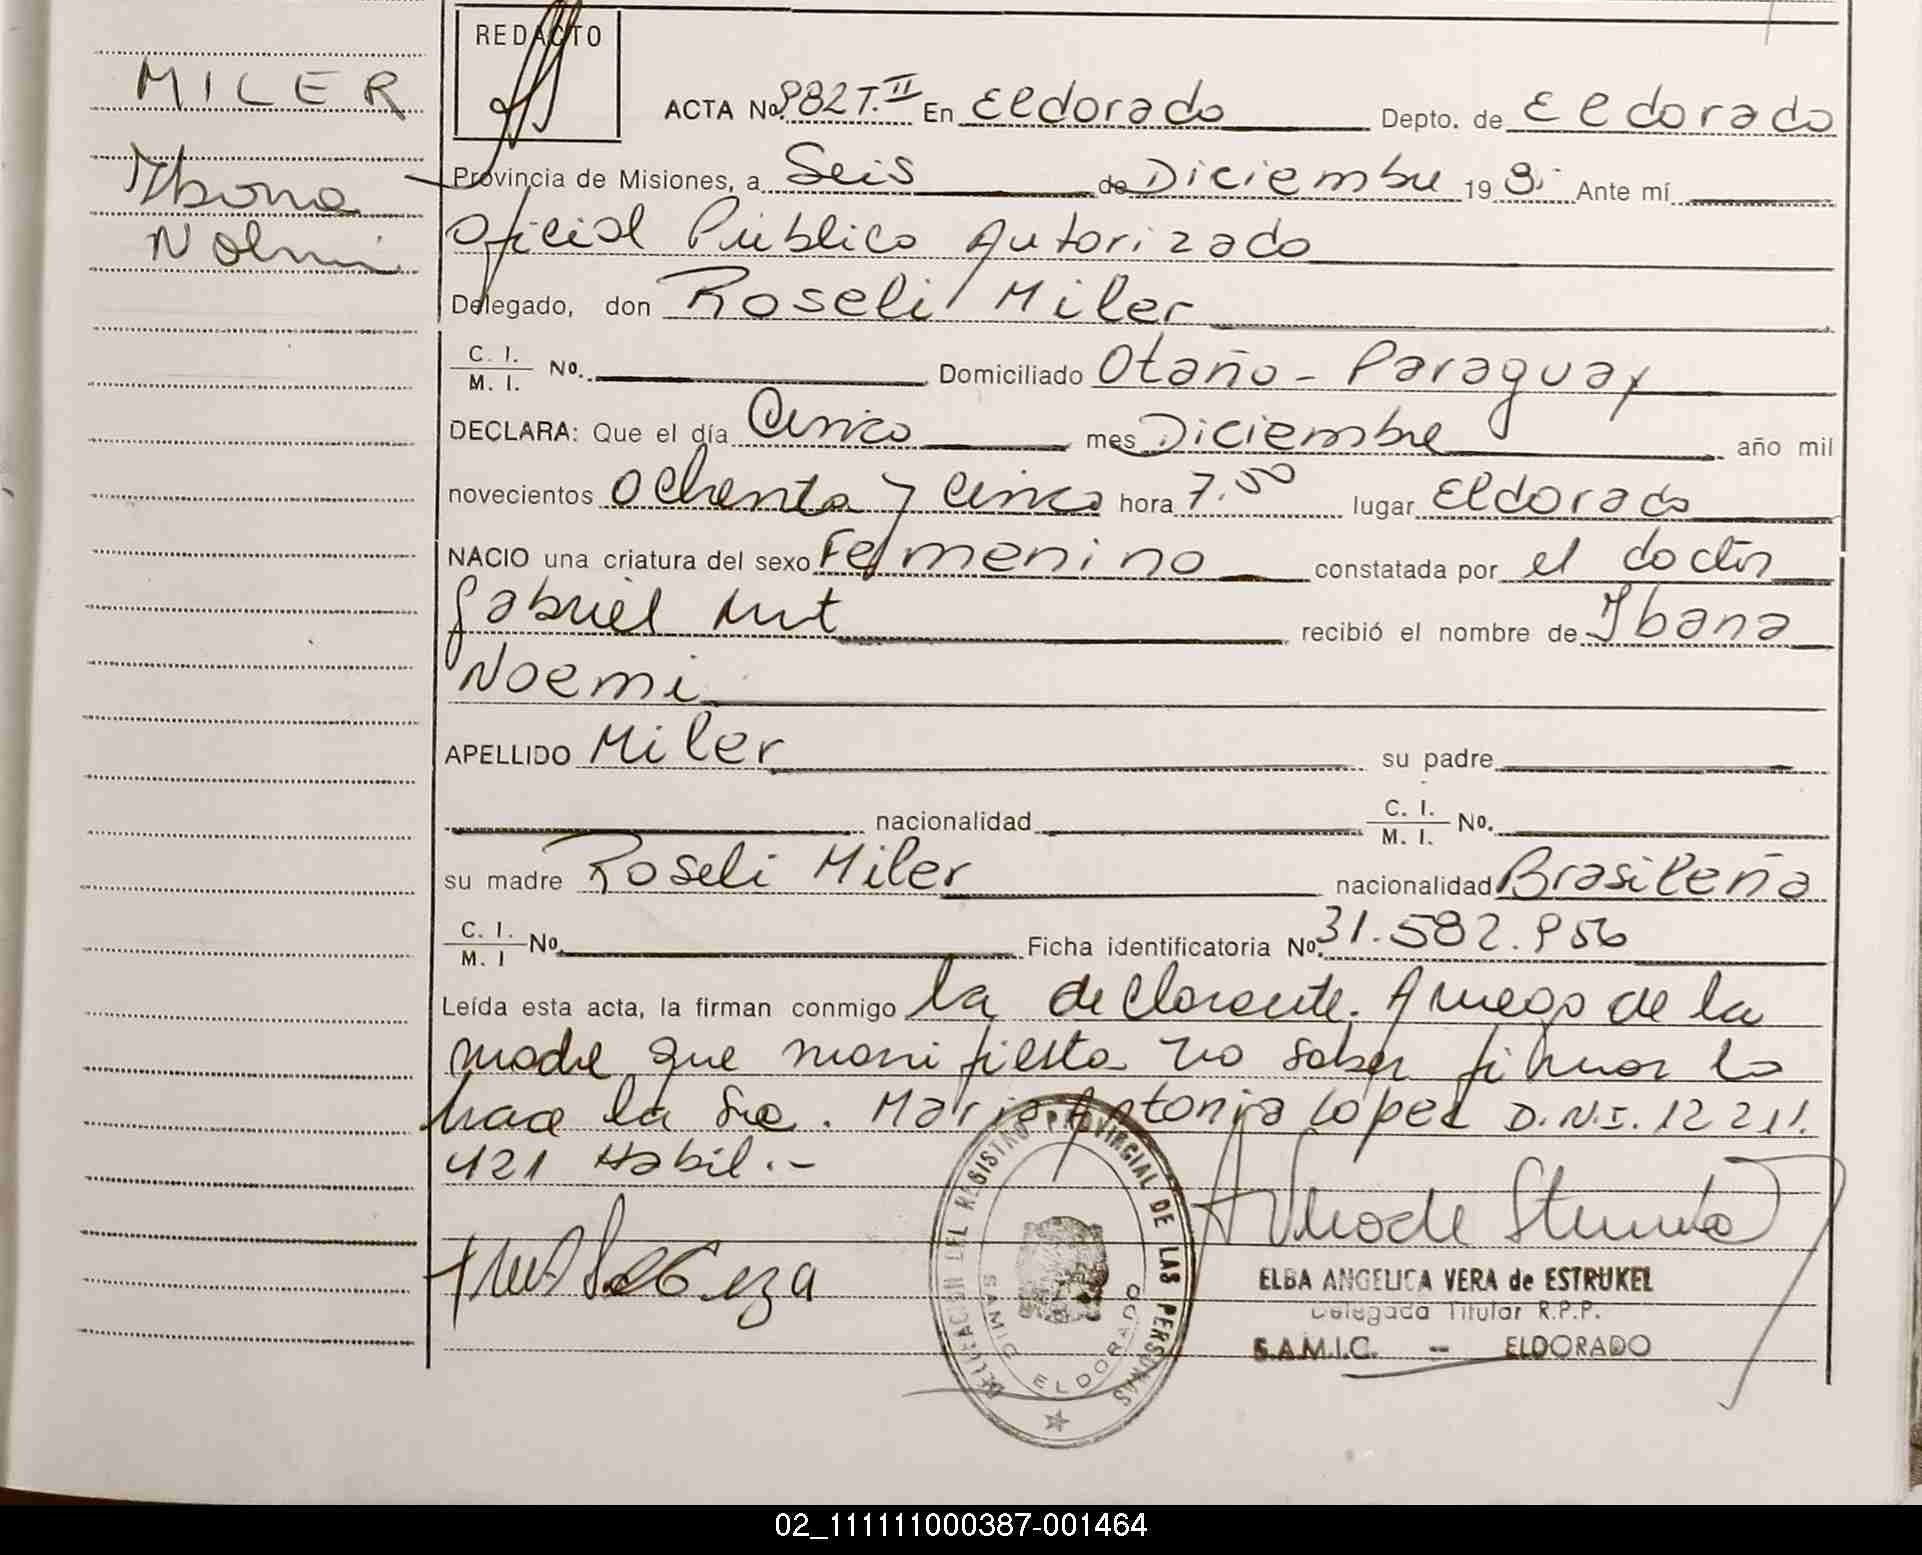 MILER
Ibana
Noemi
REDACTO
ACTA No. 982 T. II En Eldorado Depto. de Eldorado
Provincia de Misiones, a Seis de Diciembre 198 Ante mí
Oficial Público Autorizado
Delegado, don Roseli Miler
C. I. M. I. No. Domiciliado Otaño - Paraguay
DECLARA: Que el día Cinco mes Diciembre año mil
novecientos ochenta y cinco hora 7.50 lugar Eldorado
NACIO una criatura del sexo Femenino constatada por el doctor
Gabriel recibió el nombre de Ibana
Noemi
APELLIDO Miler su padre
nacionalidad C. I. M. I. No.
su madre Roseli Miler nacionalidad Brasileña
C. I. M. I No. Ficha identificatoria No. 31.582.956
Leída esta acta, la firman conmigo la declarante. A ruego de la
madre que manifiesta no saber firmar lo
hace la Sra. Maria Antonia Lopez D.N.I. 12 211.
421 Habil.-
DELEGACION DEL REGISTRO PROVINCIAL DE LAS PERSONAS
SAMIC ELDORADO
ELBA ANGELICA VERA de ESTRUKEL
Delegada Titular R.P.P.
S.A.M.I.C. - ELDORADO
02_111111000387-001464